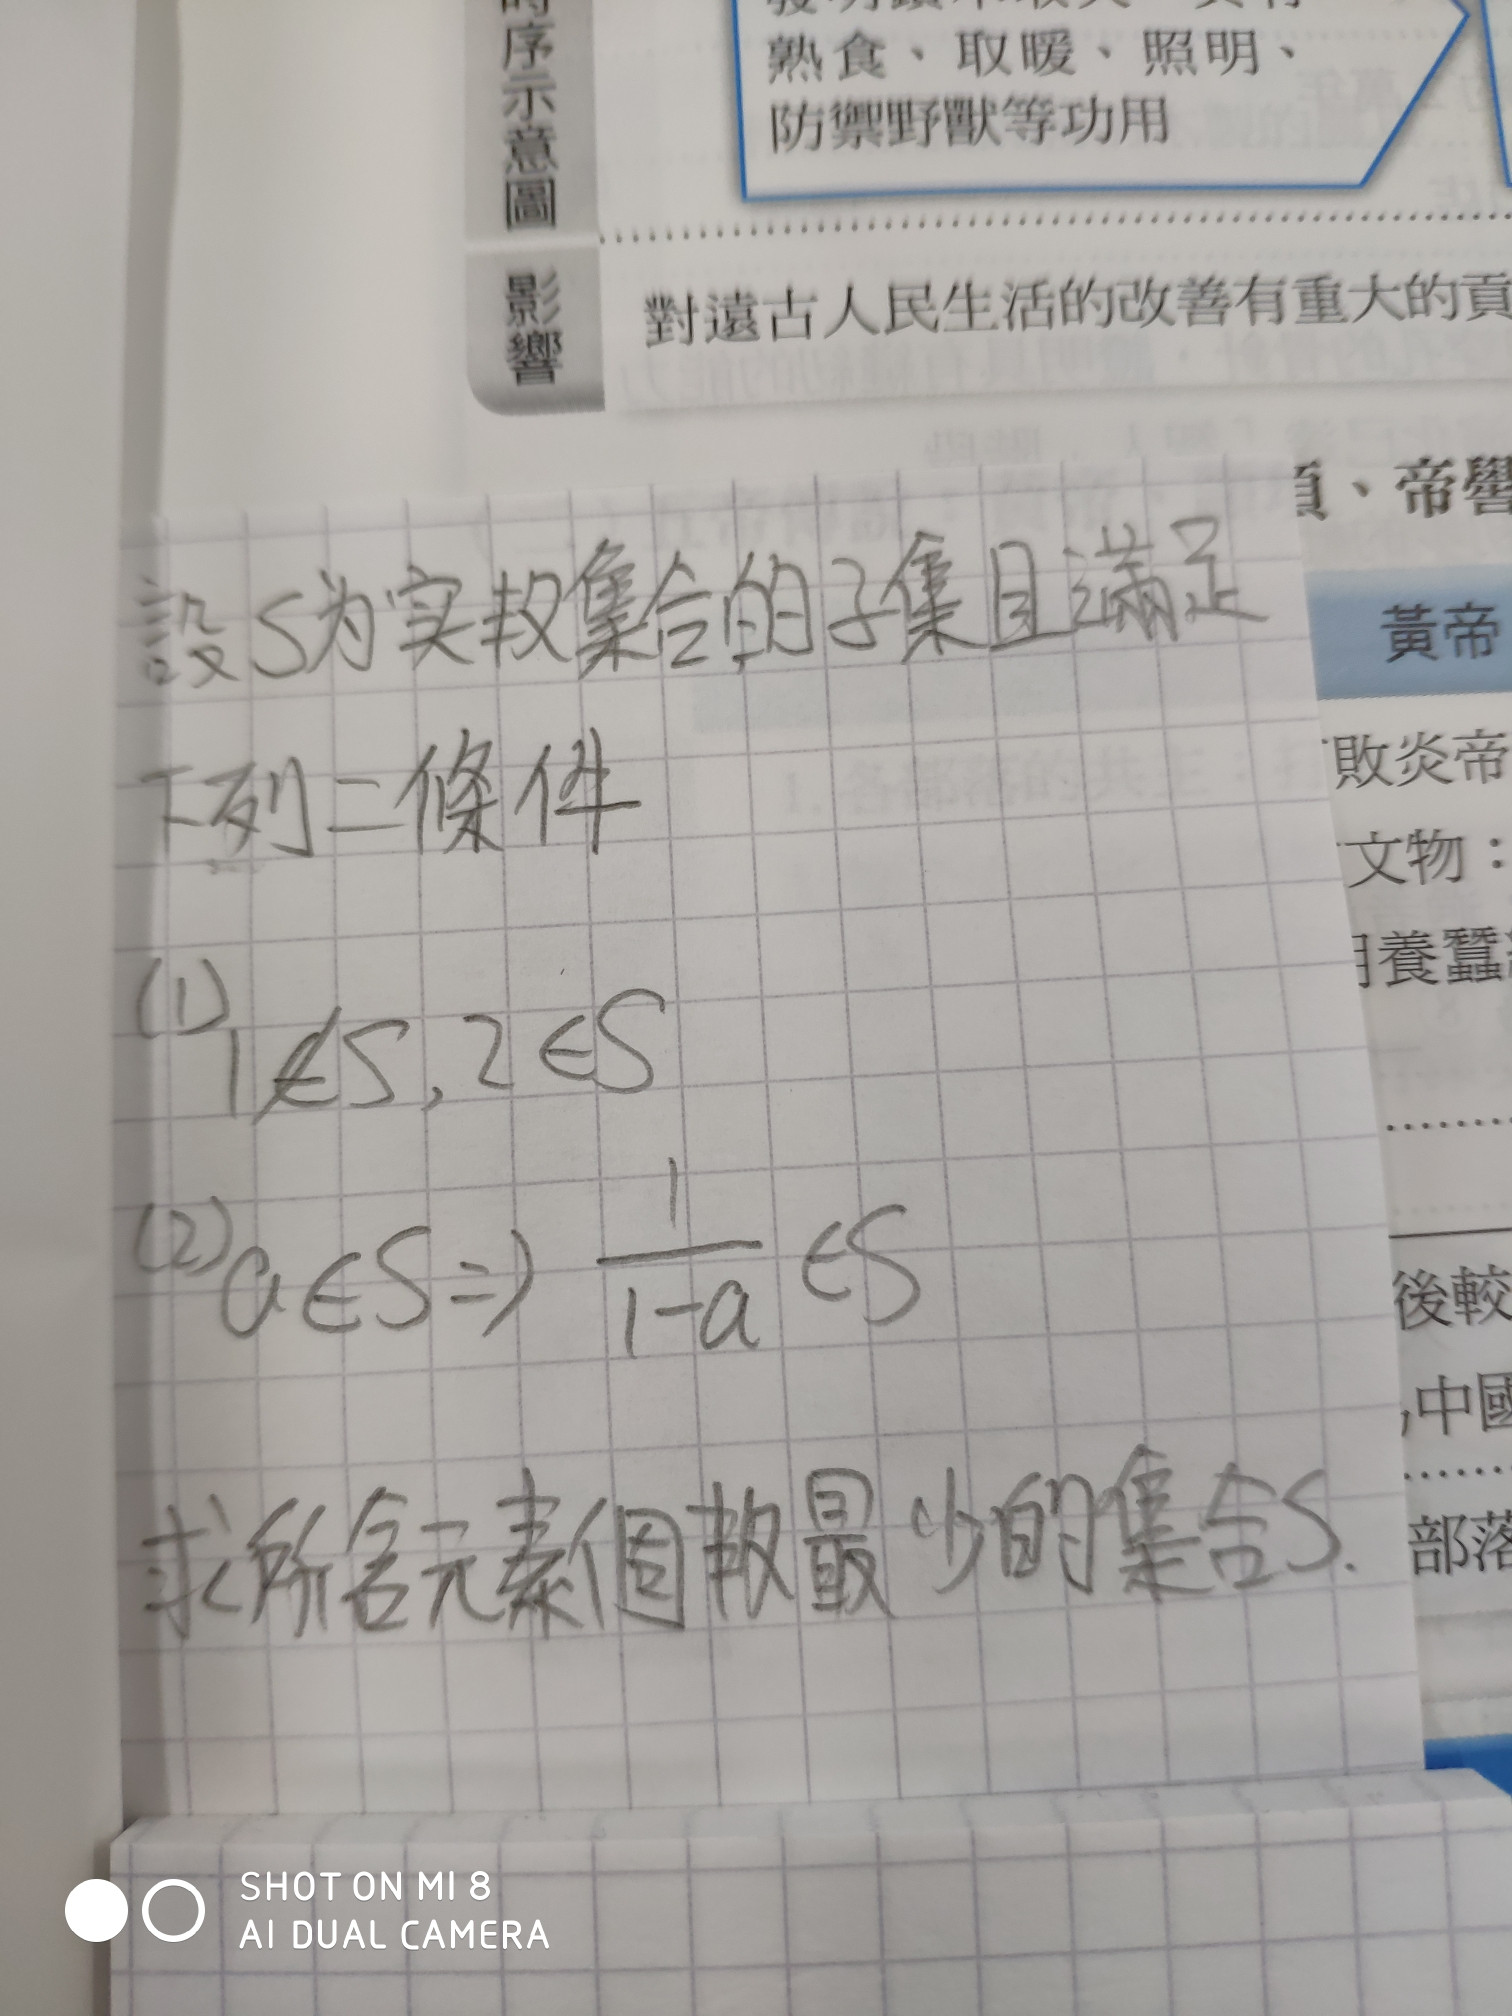 序示意圖
熟食、取暖、照明、
防禦野獸等功用
影響
對遠古人民生活的改善有重大的貢
、帝嚳
設S为实数集合的子集且滿足
黃帝
下列二條件
敗炎帝
文物：
(1) 1∉S, 2∈S
用養蠶
(2) a∈S⇒ 1/(1-a) ∈S
後較
,中國
求所含元素個数最少的集合S.
部落
SHOT ON MI 8
AI DUAL CAMERA